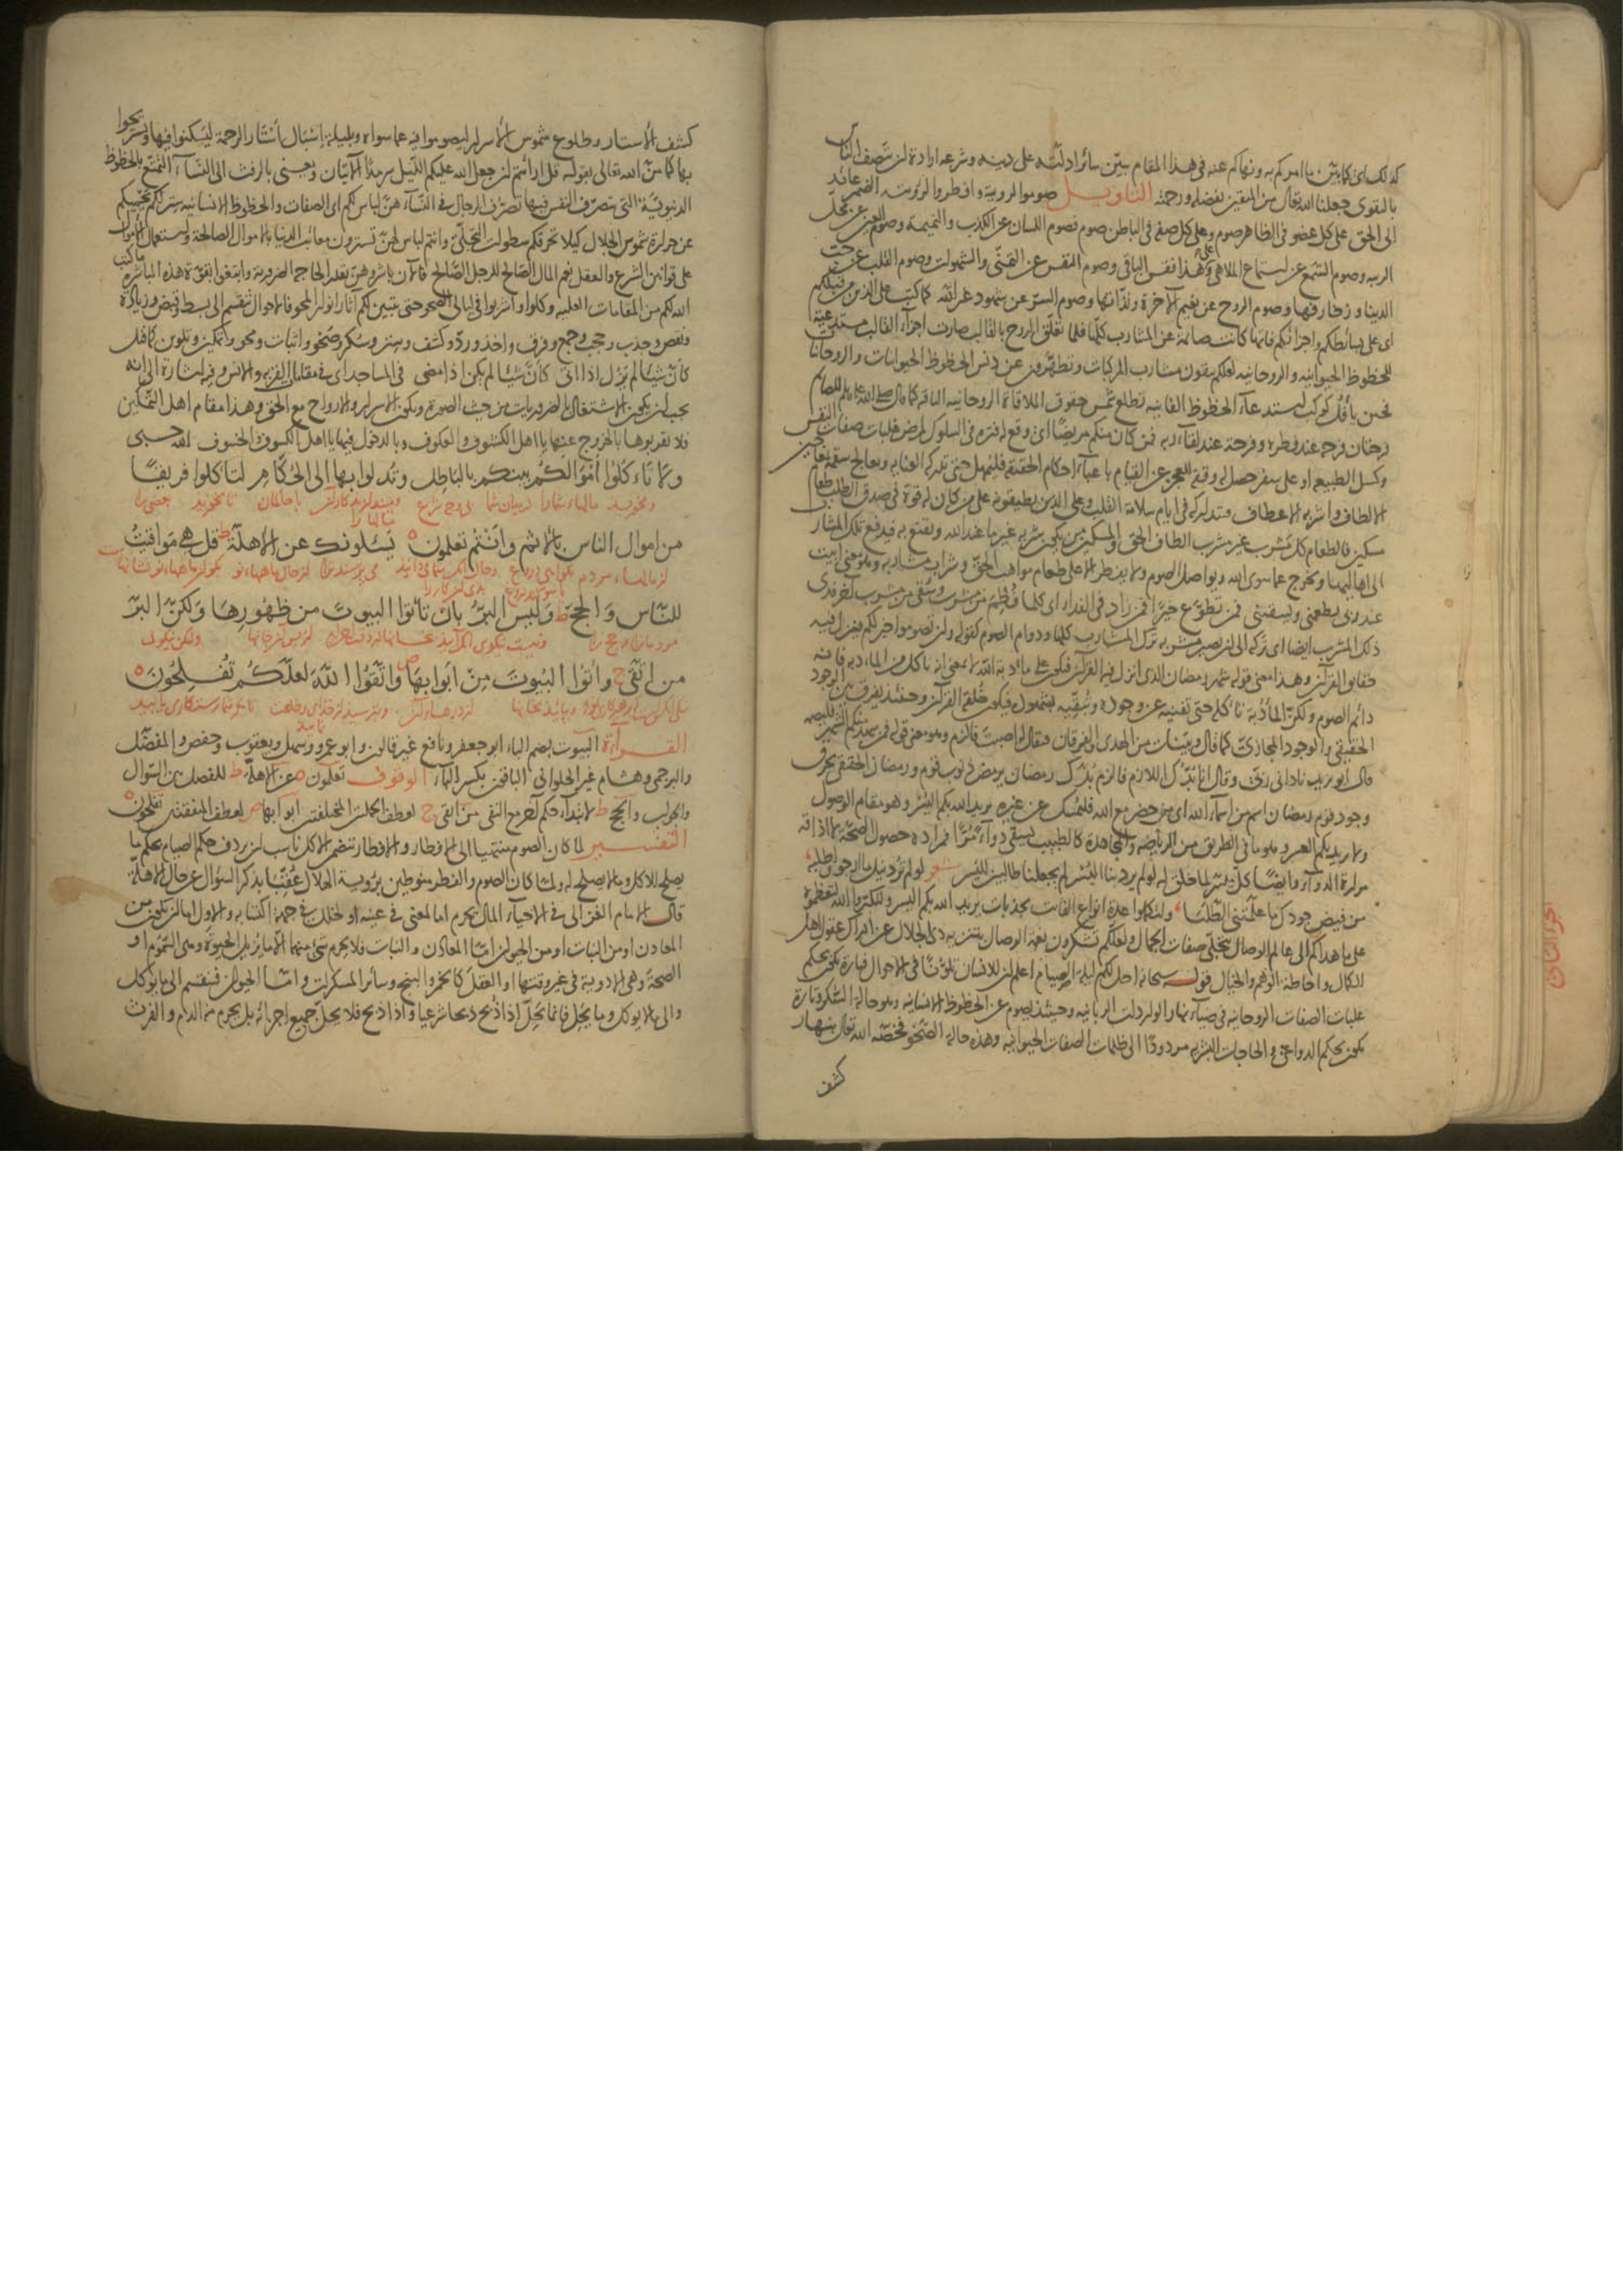 كذلك اى كما بيّن ما امركم به ونهاكم عنه فى هذا المقام يبيّن سائر ادلّته على دينه وشرعه ارادة ان يتصف الناس
بالتقوى جعلنا الله تعالى من المتقين بفضله ورحمته التاويل صوموا لرويته وافطروا لرؤيته الضمير عائد
الى الحق على كل عضو فى الظاهر صوم وعلى كل صفة فى الباطن صوم فصوم اللسان عن الكذب والنميمة وصوم العين عن محل
الريبه وصوم السّمع عن استماع الملاهى وعلى هذا فقس الباقى وصوم النفس عن التمنّى والشهوات وصوم القلب عن حب
الدنيا وزخارفها وصوم الروح عن نعيم الآخرة ولذّاتها وصوم السرّ عن شهود غير الله كما كتب على الذين من قبلكم
اى على بسائطكم واجزائكم فانها كانت صائمة عن المشارب كلّها فلما تعلّق الروح بالقالب صارت اجزاء القالب مستدعية
للحظوظ الحيوانيه والروحانيه لعلكم تتقون مشارب المركبات وتطهّرون عن دنس الحظوظ الحيوانيات والروحانيات
فحين يأفل كوكب استدعاء الحظوظ الفانيه تطلع شمس حقوق الملاقاة الروحانيه الباقيه كما قال صلى الله عليه للصائم
فرحتان فرحه عند فطره وفرحة عند لقاء ربه فمن كان منكم مريضًا اى وقع له فتره فى السلوك لمرض غلبات صفات النفس
وكسل الطبيعه او على سفر حصل له وقفة للعجز عن القيام باعباء احكام الحقيقه فليمهل حتى تدركه العنايه ويعالج سقمه بمعاجين
الالطاف واشربه الاعطاف فيتداركه فى ايام سلامة القلب وعلى الذين يطيقونه على من كان له قوة فى صدق الطلب طعام
مسكين فالطعام كل مشرب غير مشرب الطاف الحق والمسكين من يكون مشربه غير ما عند الله ويقتنع به فيدفع تلك المشارب
الى اهاليها ويخرج عما سوى الله ويواصل الصوم ولا يفطر الا على طعام مواهب الحق وشراب مشاربه وهو معنى ابيت
عند ربى يطعمنى ويسقينى فمن تطوّع خيرًا فمن زاد فى الفداء اى كلما فُطم من مشرب وسُقى من مشرب آخر فدى
ذلك المشرب ايضا اى تركه الى ان يصير مشربه ترك المشارب كلها ودوام الصوم كقوله وان تصوموا خير لكم فينزل فيه
حقايق القرآن وهذا معنى قوله شهر رمضان الذى انزل فيه القرآن فيكون على مأدبة الله لا بمعنى انه ياكل من المادبه فانه
دائم الصوم ولكن المأدُبة تاكله حتى تفنيه عن وجوده وتبقّيه بشهوده فيكون خُلقه القرآن وحينئذ يفرق بين الوجود
الحقيقى والوجود المجازىّ كما قال وبيّنات من الهدى والفرقان فيقال له اصبتَ فالزم وهو معنى قوله فمن شهد منكم الشهر فليصمه
قال ابو يزيد نادانى ربّى وقال انا بدّك اللازم فالزم بدّك رمضان يرمض ذنوب قوم ورمضان الحقيقى يحرق
وجود قوم رمضان اسم من اسماء الله اى من حضر مع الله فليمسك عن غيره يريد الله بكم اليُسْر وهو مقام الوصول
ولا يريد بكم العسر وهو ما فى الطريق من الرياضة والمجاهدة كالطبيب يسقى دواء مُرًّا فمراده حصول الصحّة لا اذاقة
مرارة الدواء وايضًا كلّ ميسّر لما خلق له لو لم يرد بنا اليُسْر لم يجعلنا طالبين لليسر شعر لو لم تُرد نيل ما ارجو واطلبه
من فيض جودك ما علّمتنى الطّلبَا ولتكملوا عدة انواع الفائت بجذبات يريد الله بكم اليسر ولتكبّروا الله لتعظموه
على ما هداكم الى عالم الوصال بتجلّى صفات الجمال ولعلّكم تشكرون نعمة الوصال بتنزيه ذى الجلال عن ادراك عقول اهل
الكمال واحاطة الوهم والخيال قوله سبحانه احل لكم ليلة الصيام اعلم ان للانسان تلوّنًا فى الاحوال فتارة يكون بحكم
غلبات الصفات الروحانيه فى ضياء نهار الواردات الربانيه وحينئذ يصوم عن الحظوظ الانسانيه وهو حالة السكر وتارة
يكون بحكم الدواعى والحاجات البشريه مردودًا الى ظلمات الصفات الحيوانيه وهذه حالة الصّحو فخصّه الله تعالى بنهار
كشف
الجزء الثانى
كشف الاستار وطلوع شموس الاسرار ليصوموا فيه عما سواه وبليلة اسبال استار الرحمة ليسكنوا فيها ويستريحوا
بها كما منّ الله تعالى بقوله قل ارأيتم ان جعل الله عليكم اللّيل سرمدًا الآيتان ويعنى بالرفث الى النساء التمتّع بالحظوظ
الدنيويّة التى تتصرّف النفس فيها تصرّف الرجال فى النساء هنّ لباس لكم اى الصفات والحظوظ الانسانيه ستر لكم تحميكم
عن حرارة شموس الجلال كيلا تحرقكم سطوات التجلّى وانتم لباس لهنّ تسترون معائب الدنيا بالاموال الصالحة واستعمال الاموال
على قوانين الشرع والعقل نعم المال الصّالح للرجل الصّالح فالآن باشروهنّ بقدر الحاجة الضروريه وابتغوا بقوّة هذه المباشرة ما كتب
الله لكم من المقامات العليه وكلوا واشربوا فى ليالى الصحو حتى يتبين لكم آثار انوار المحو فالاحوال تنقسم الى بسط وقبض وزيادة
ونقص وجذب وحجب وجمع وفرق واخذ وردّ وكشف وستر وسكر وصَحْو واثبات ومحو وتمكين وتلوين كما قيل
كأنّ شيئًا لم يزل اذا اتى كأنّ شيئا لم يكن اذا مضى فى المساجد اى فى مقامات القربه والانس وفيه اشارة الى انه
يجب ان يكون الاشتغال بالضروريات من حيث الصورة وتكون الاسرار والارواح مع الحق وهذا مقام اهل التمكين
فلا تقربوها بالخروج عنها يا اهل الكشوف والعكوف وبالدخول فيها يا اهل الكسوف والخسوف الله حسبى
ولا تأكلوا أموالكُم بينكم بالباطل وتُدلوا بها الى الحُكّام لتاكلوا فريقًا
ومخوريد مالهاء شمارا درميان شما تا بخوريد بعضى را
من اموال الناس بالاثم وانتم تعلمون يَسئلونك عن الاهلّة قل هى مواقيتُ
للنّاس وَالحجّ وَليس البرُّ بان تاتوا البيوتَ من ظهُورِها ولكنّ البرّ
من اتّقى وأتوا البُيوتَ مِنْ ابوابِهَا واتّقوُا اللّهَ لعلّكُم تُفْلِحُونَ
القراءة البيوت بضم الباء ابو جعفر ونافع غير قالون وابو عمرو وسهل ويعقوب وحفص والمفضّل
والبرجمى وهشام غير الحلوانى الباقون بكسر الباء الوقوف تعلمون ه عن الاهلّة ط للفصل بين السّؤال
والجواب والحج ط لابتداء حكم آخر مع النفى من اتقى ج لعطف الجملتين المختلفتين ابوابها ص لعطف المتفقتين تفلحون ه
التفسير لما كان الصوم منتهيا الى الافطار والافطار يتضمن الاكل ناسب ان يردف حكم الصيام بحكم ما
يصلح للاكل وما لا يصلح له ولمّا كان الصوم والفطر منوطين برؤية الهلال عُقّبا بذكر السّؤال عن حال الاهلّة
قال الامام الغزالى فى الاحياء المال يحرم اما لمعنى فى عينه او لخلل فى جهة اكتسابه والاول اما ان يكون من
المعادن او من النبات او من الحيوان امّا المعادن والنبات فلا يحرم شئ منهما الّا ما يزيل الحيوة وهى السّموم او
الصحة وهى الادوية فى غير وقتها او العقل كالخمر والبنج وسائر المسكرات وامّا الحيوان فينقسم الى ما يؤكل
والى ما لا يؤكل وما يحلّ فانما يحلّ اذا ذُبح ذبحا شرعيا واذا ذبح فلا يحلّ جميع اجزائه بل يحرم منه الدم والفرث